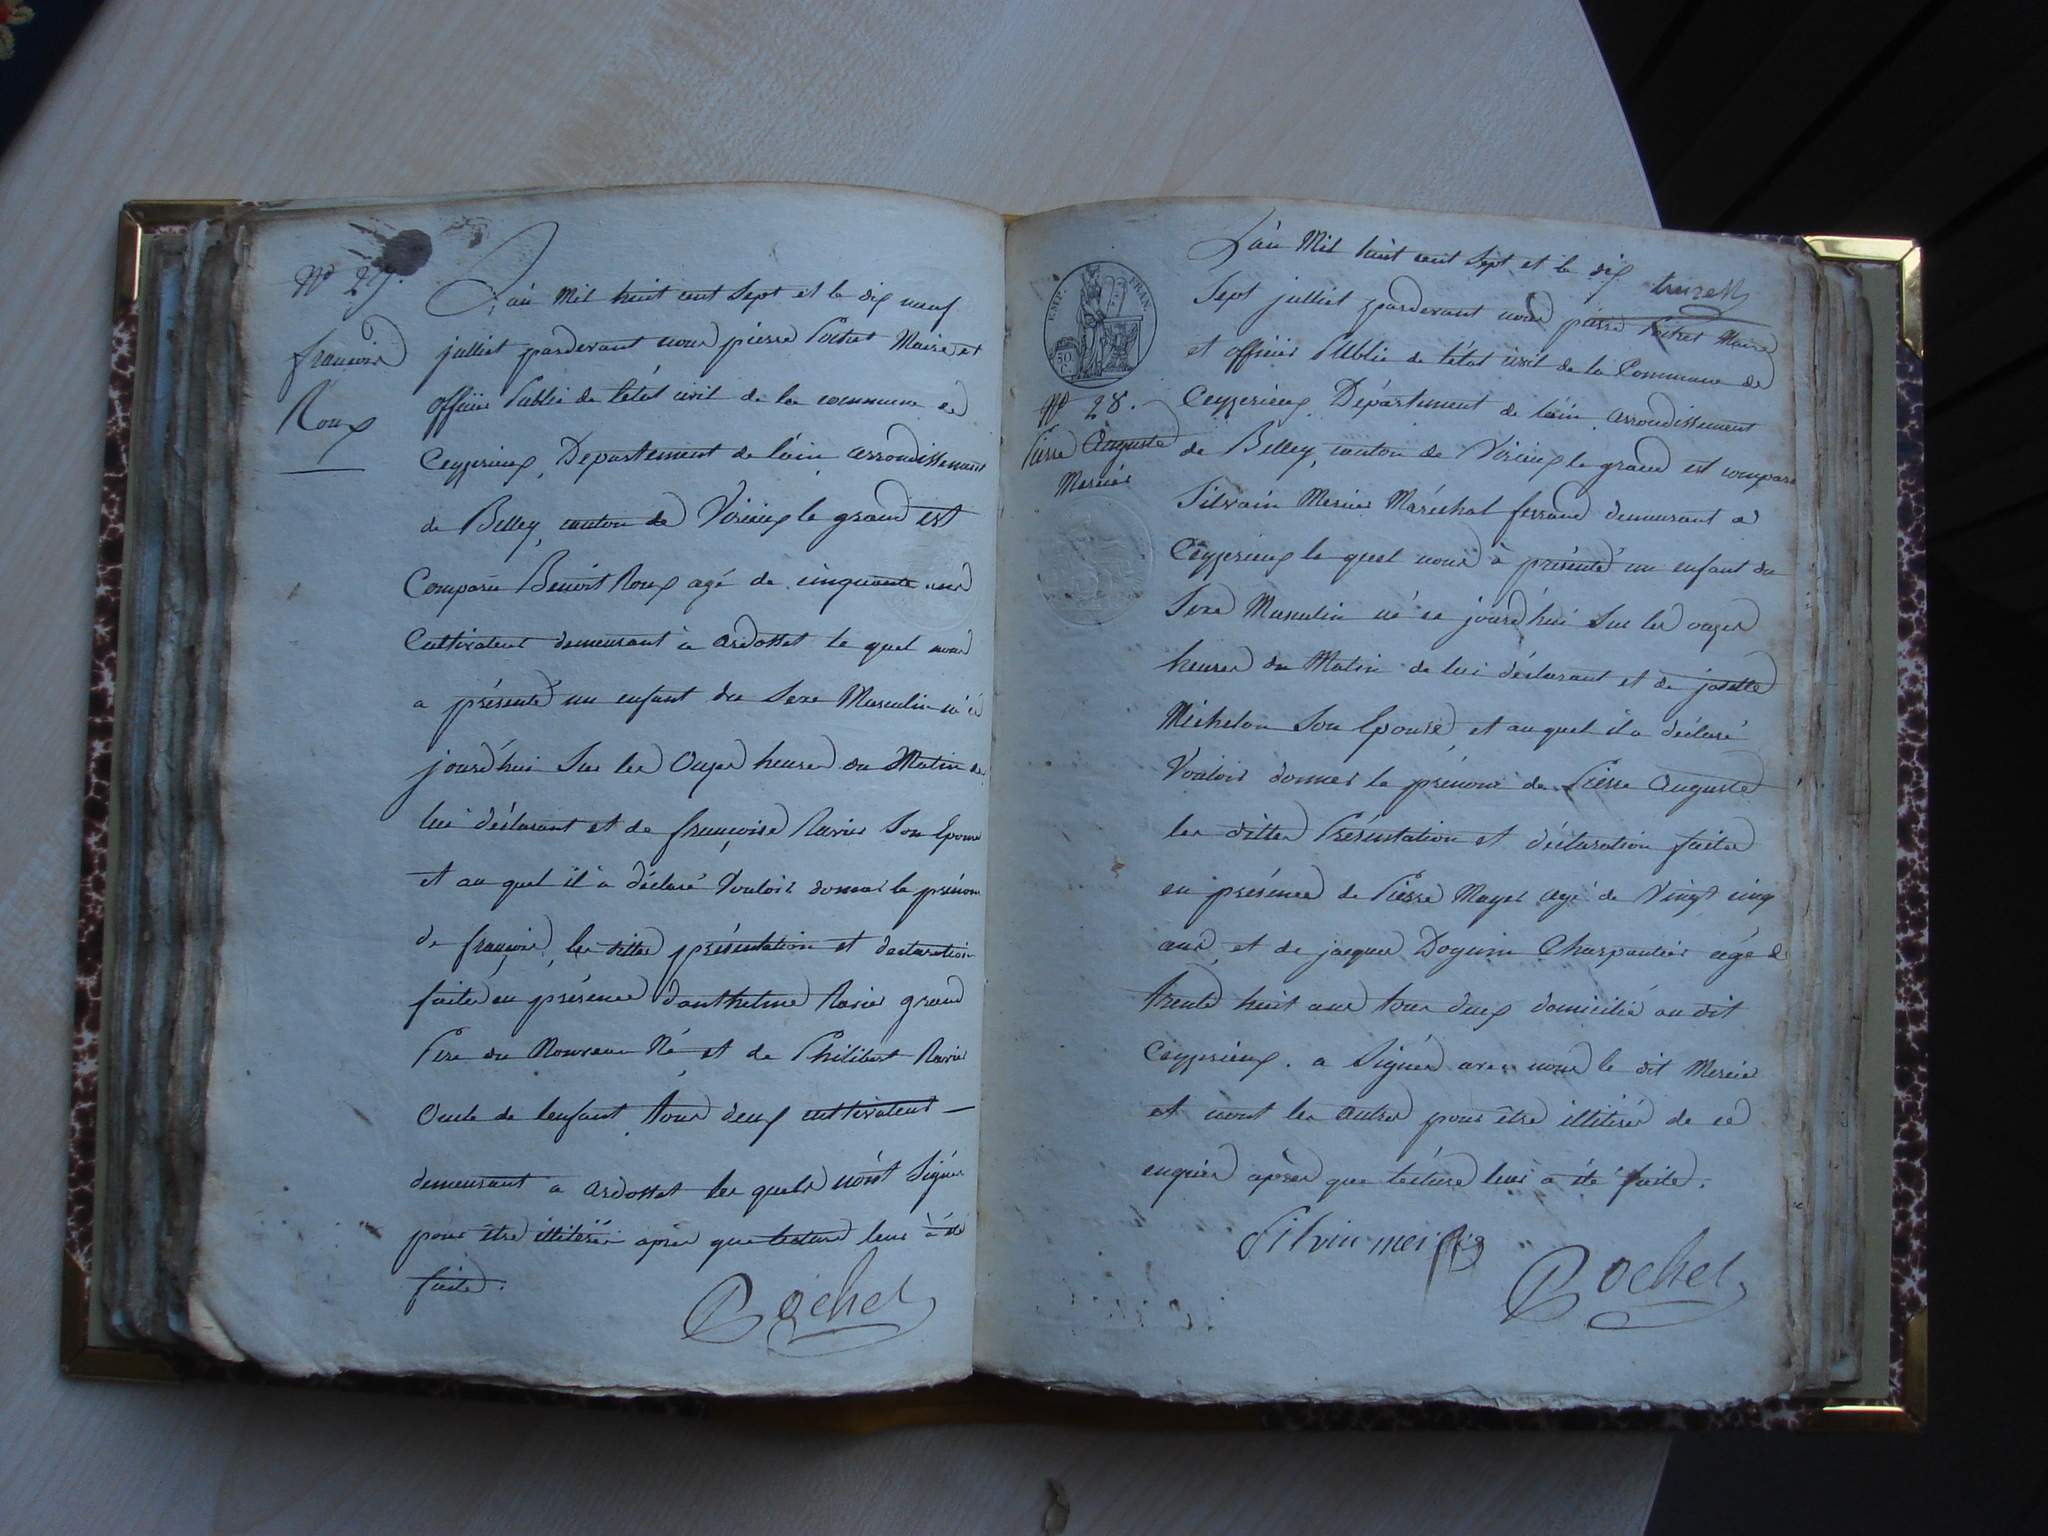 N° 27.
françois
Roux
L'an Mil huit cent sept et le dix neuf
julliet pardevant nous pierre Pochet Maire et
officier Public de l'état civil de la commune de
Ceyzerieux, Departement de l'ain arrondissement
de Belley, canton de Virieux le grand est
Comparu Benoit Roux agé de cinquante ans
Cultivateur demeurant à ardosset le quel nous
a présenté un enfant du Sexe Masculin né ce
jourd'hui Sur les Onzes heures du Matin de
lui déclarant et de françoise Ravier Son Epouse
et au quel il a déclaré Vouloir donner le prénom
de françois, les dittes présentation et declaration
faites en présence d'anthelme Ravier grand
Pere du Nouveau Né et de Philibert Ravier
Oncle de lenfant tous deux cultivateur
demeurant a ardosset les quels n'ont Signés
pour être illitérés après que lecture leur a été
faite.
Pochet
L'an Mil huit cent Sept et le dix
Sept julliet pardevant nous pierre Pochet Maire
et officier Public de l'état civil de la Commune de
Ceyzerieux, Départment de l'ain arrondissement
de Belley, canton de Virieux le grand est comparu
EMP. FRAN.
50 C.
N° 28.
Pierre Auguste
Mercier
Silvain Mercier Maréchal ferrand demeurant a
Ceyzerieux le quel nous à présenté un enfant du
Sexe Masculin né ce jourd'hui Sur les onzes
heures du Matin de lui déclarant et de josette
Michelon Son Epouse, et au quel il a déclaré
Vouloir donner le prénom de Pierre Auguste
les dittes Présentation et déclaration faites
en présence de Pierre Mayet agé de Vingt cinq
ans, et de jacques Doguin Charpentier agé de
trente huit ans tous deux domicilié au dit
Ceyzerieux. a Signés avec nous le dit Mercier
et nont les autres pour être illitérés de ce
enquis après que lecture leur a été faite.
Silvin
Pochet